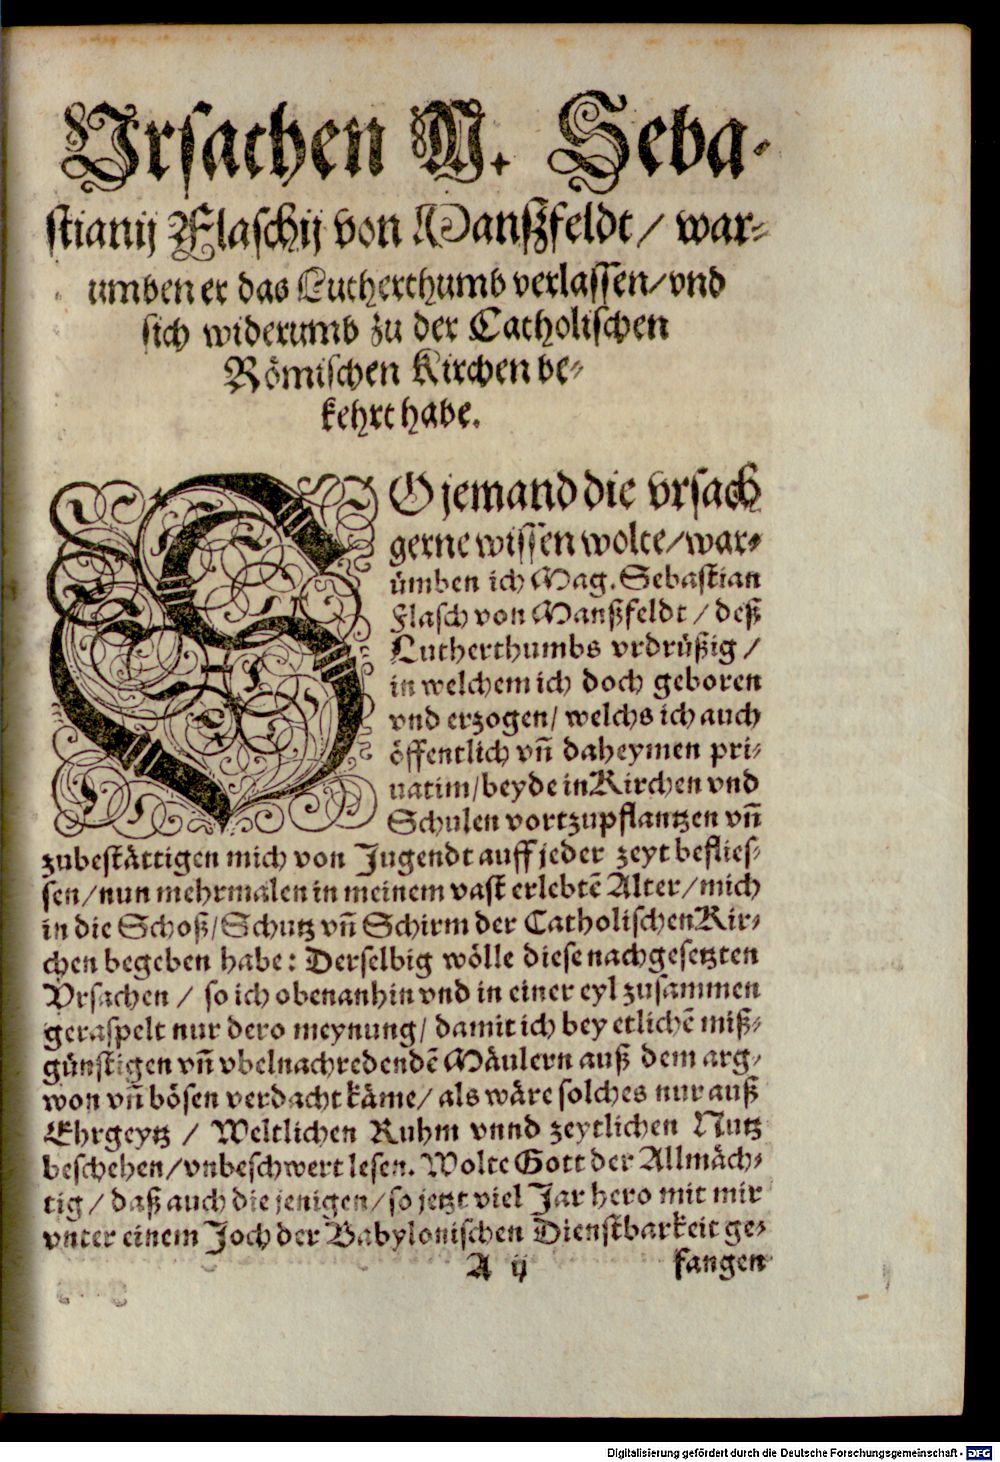 Vrsachen M. Seba-
stianij Flaschij von Manßfeldt / war-
umben er das Lutherthumb verlassen / vnd
sich widerumb zu der Catholischen
Römischen Kirchen be-
kehrt habe.
SO jemand die vrsach
gerne wissen wolte / war-
ümben ich Mag. Sebastian
Flasch von Manßfeldt / deß
Lutherthumbs vrdrüßig /
in welchem ich doch geboren
vnd erzogen / welchs ich auch
öffentlich vn̄ daheymen pri-
uatim / beyde in Kirchen vnd
Schulen vortzupflantzen vn̄
zubestättigen mich von Jugendt auff jeder zeyt beflies-
sen / nun mehrmalen in meinem vast erlebtē Alter / mich
in die Schoß / Schutz vn̄ Schirm der Catholischen Kir-
chen begeben habe: Derselbig wölle diese nachgesetzten
Vrsachen / so ich obenanhin vnd in einer eyl zusammen
geraspelt nur dero meynung / damit ich bey etlichē miß-
günstigen vn̄ vbelnachredendē Mäulern auß dem arg-
won vn̄ bösen verdacht käme / als wäre solches nur auß
Ehrgeytz / Weltlichen Ruhm vnnd zeytlichen Nutz
beschehen / vnbeschwert lesen. Wolte Gott der Allmäch-
tig / daß auch die jenigen / so jetzt viel Jar hero mit mir
vnter einem Joch der Babylonischen Dienstbarkeit ge-
A ij fangen
Digitalisierung gefördert durch die Deutsche Forschungsgemeinschaft - DFG